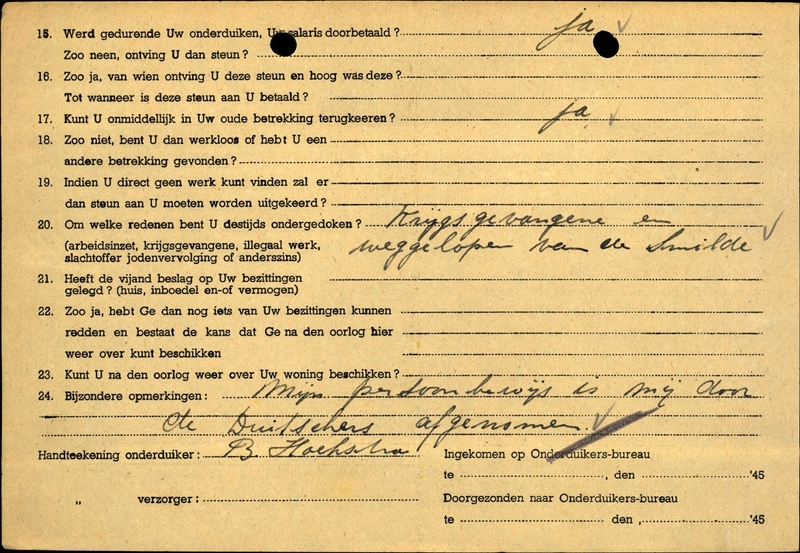 15. Werd gedurende Uw onderduiken, Uw salaris doorbetaald? ja
Zoo neen, ontving U dan steun?
16. Zoo ja, van wien ontving U deze steun en hoog was deze?
Tot wanneer is deze steun aan U betaald?
17. Kunt U onmiddellijk in Uw oude betrekking terugkeeren? ja
18. Zoo niet, bent U dan werkloos of hebt U een
andere betrekking gevonden?
19. Indien U direct geen werk kunt vinden zal er
dan steun aan U moeten worden uitgekeerd?
20. Om welke redenen bent U destijds ondergedoken? Krijgsgevangene en
(arbeidsinzet, krijgsgevangene, illegaal werk, weggelopen van de Smilde
slachtoffer jodenvervolging of anderszins)
21. Heeft de vijand beslag op Uw bezittingen
gelegd? (huis, inboedel en-of vermogen)
22. Zoo ja, hebt Ge dan nog iets van Uw bezittingen kunnen
redden en bestaat de kans dat Ge na den oorlog hier
weer over kunt beschikken
23. Kunt U na den oorlog weer over Uw woning beschikken?
24. Bijzondere opmerkingen: Mijn persoonbewijs is mij door
de Duitschers afgenomen.
Handteekening onderduiker: B Hoekstra
Ingekomen op Onderduikers-bureau
te , den '45
„ verzorger:
Doorgezonden naar Onderduikers-bureau
te den , '45